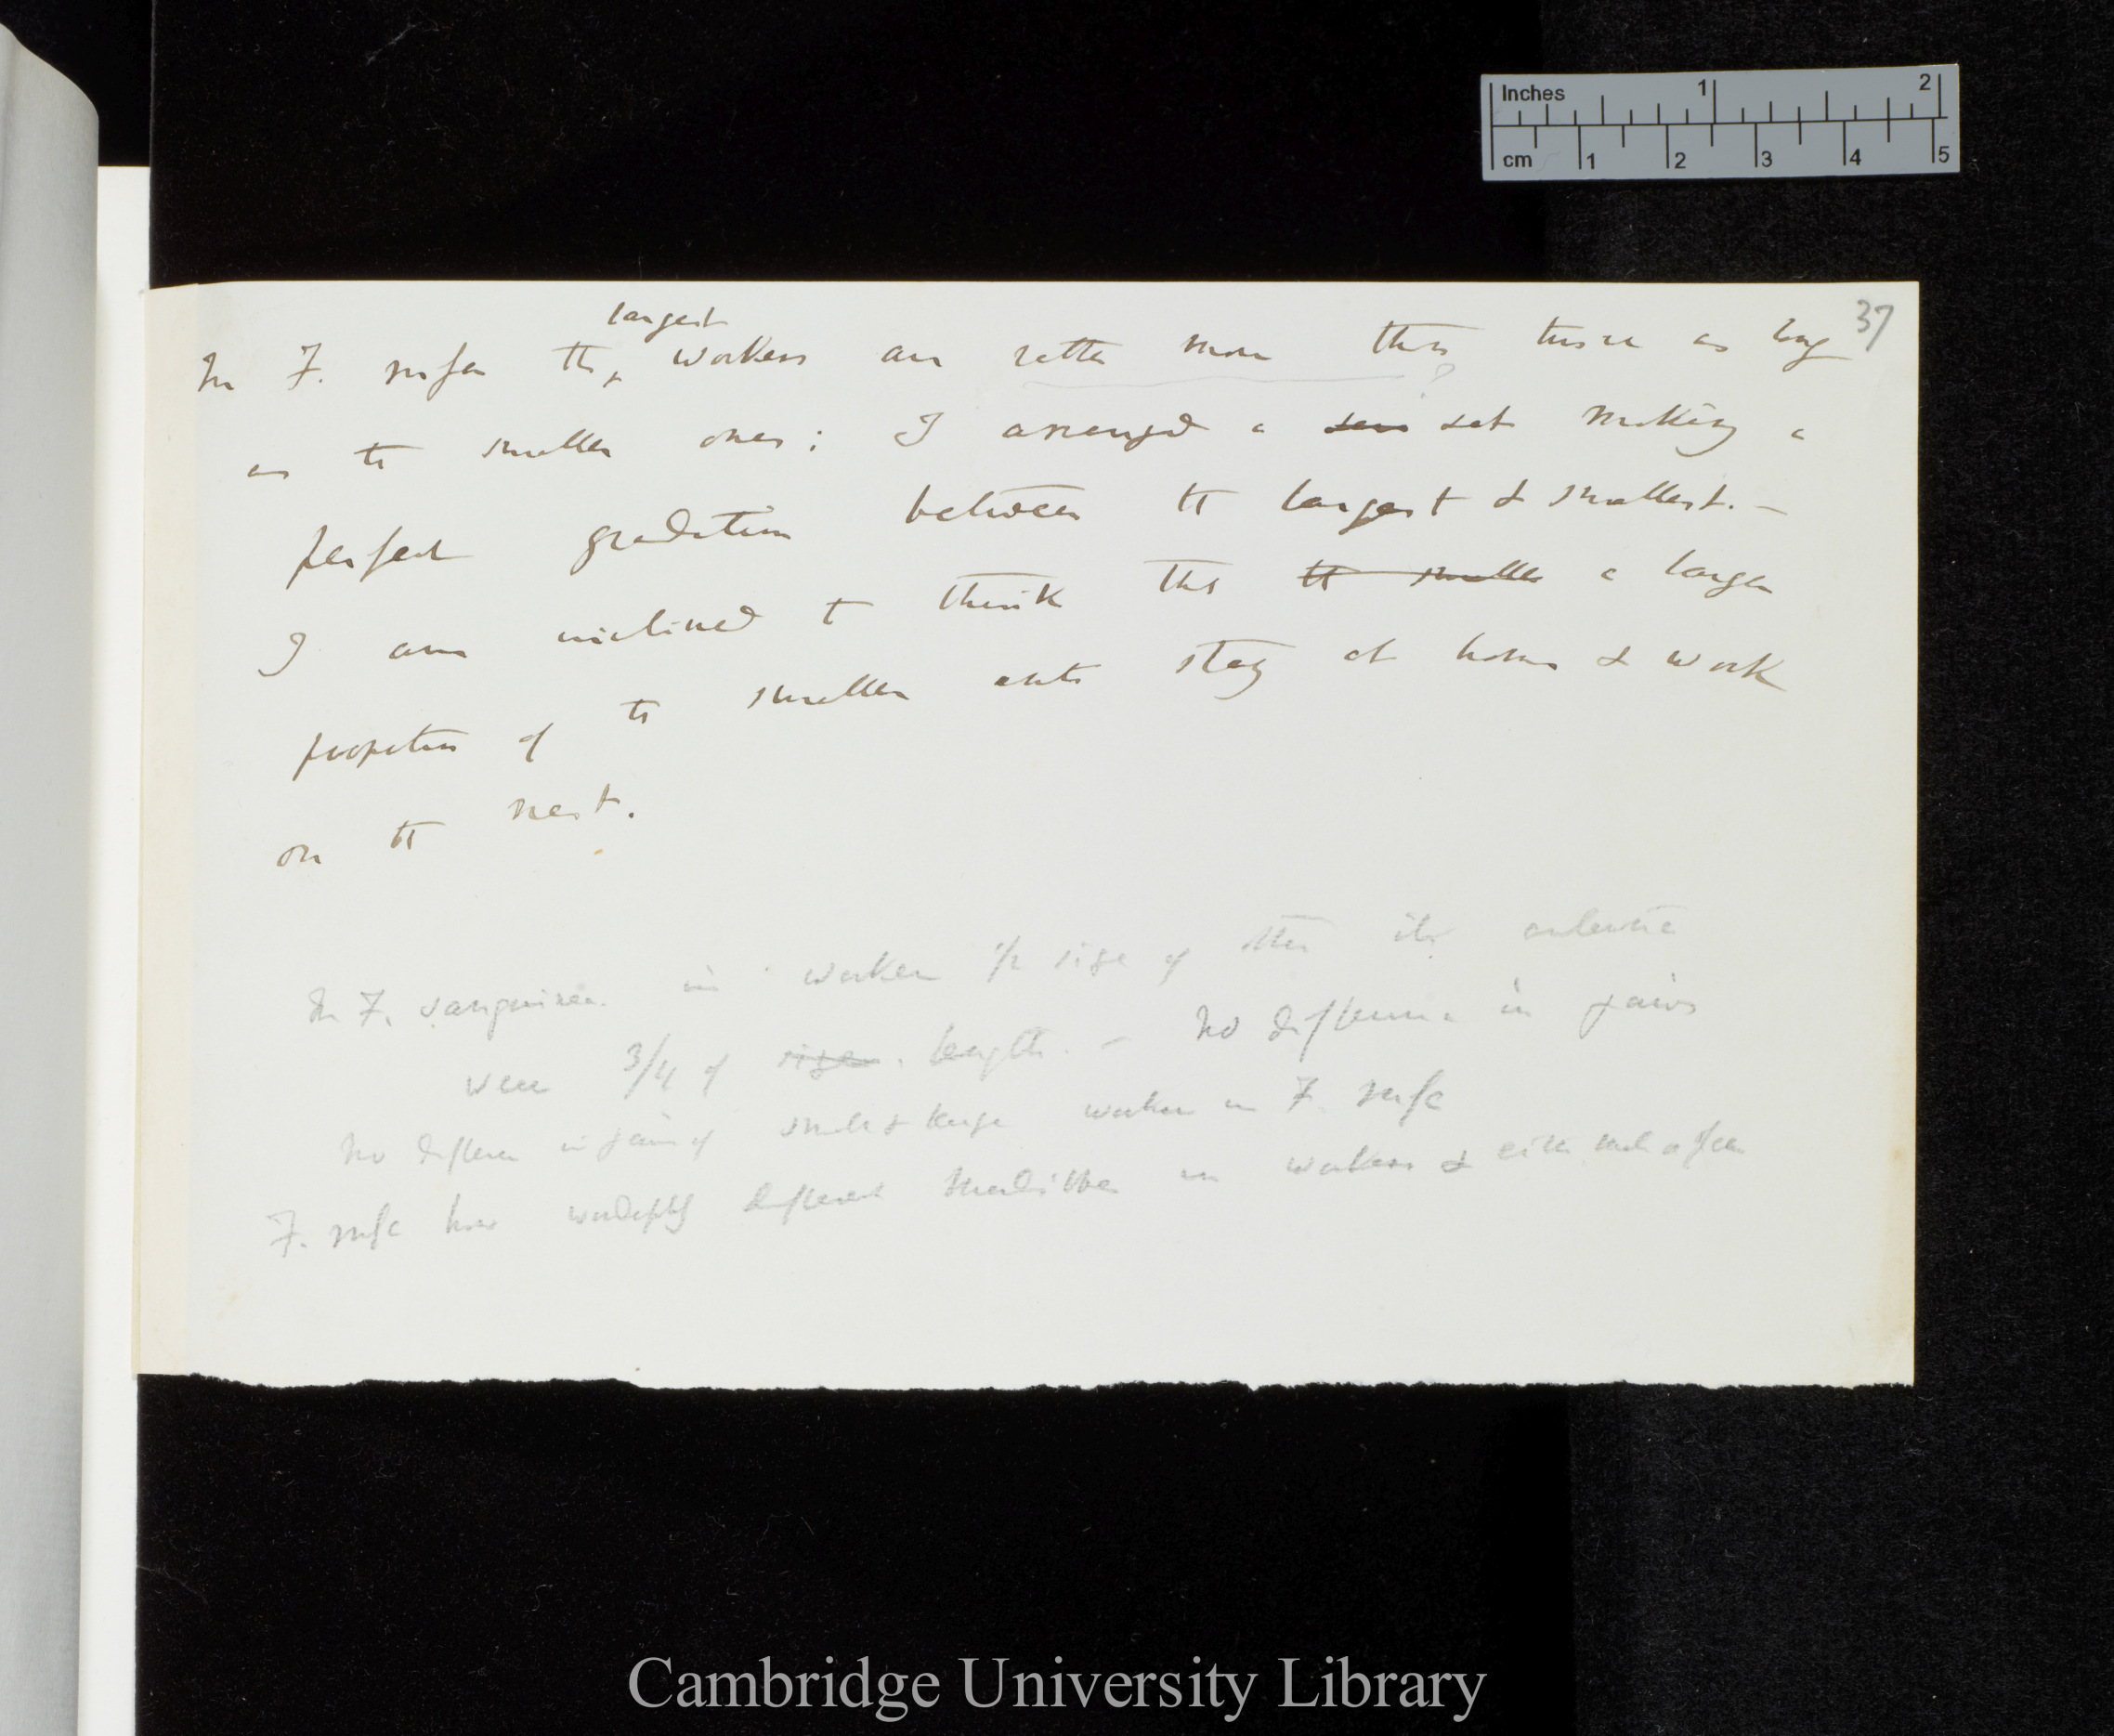 Inches 1 2
cm 1 2 3 4 5
37
largest
In F. rufa the workers are rather more than twice as long
as the smaller ones; I arranged a seri set making a
perfect gradation between the largest & smallest. —
I am inclined to think that the smaller a larger
proportion of the smaller ants stay at home & work
on the nest.
In F. sanguinea in worker 1/2 size of other its antennæ
were 3/4 of size. length. — No difference in jaws
No difference in jaws of small & large worker in F. rufa
F. rufa how wonderfully different in workers &
Cambridge University Library